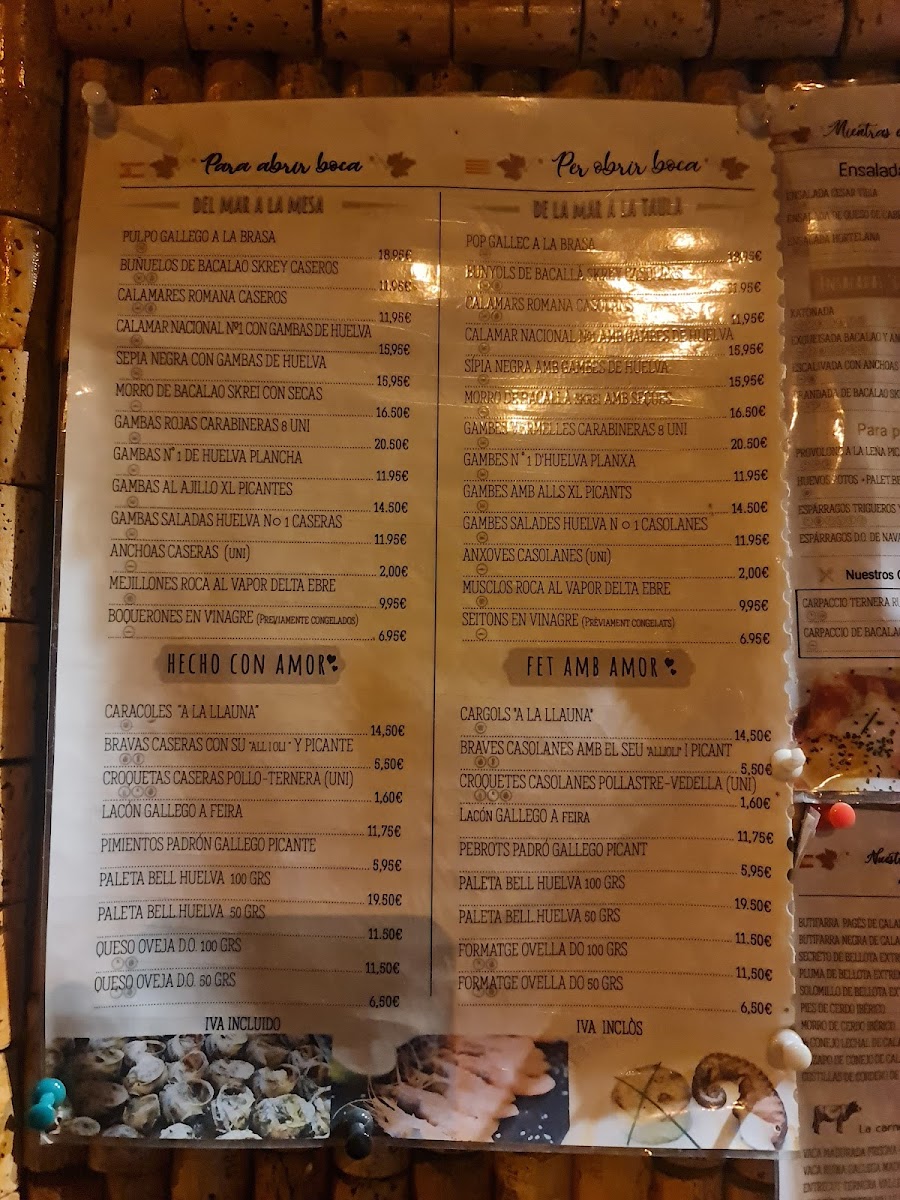 Para abrir boca
DEL MAR A LA MESA
PULPO GALLEGO A LA BRASA
18,95€
BUÑUELOS DE BACALAO SKREY CASEROS
11.95€
CALAMARES ROMANA CASEROS
11,95€
CALAMAR NACIONAL Nº1 CON GAMBAS DE HUELVA
15,95€
SEPIA NEGRA CON GAMBAS DE HUELVA
15,95€
MORRO DE BACALAO SKREI CON SECAS
16.50€
GAMBAS ROJAS CARABINERAS 8 UNI
20.50€
GAMBAS Nº 1 DE HUELVA PLANCHA
11.95€
GAMBAS AL AJILLO XL PICANTES
14.50€
GAMBAS SALADAS HUELVA Nº 1 CASERAS
11.95€
ANCHOAS CASERAS (UNI)
2,00€
MEJILLONES ROCA AL VAPOR DELTA EBRE
9,95€
BOQUERONES EN VINAGRE (PREVIAMENTE CONGELADOS)
6.95€
HECHO CON AMOR
CARACOLES "A LA LLAUNA"
14,50€
BRAVAS CASERAS CON SU "ALLIOLI" Y PICANTE
5,50€
CROQUETAS CASERAS POLLO-TERNERA (UNI)
1,60€
LACÓN GALLEGO A FEIRA
11,75€
PIMIENTOS PADRÓN GALLEGO PICANTE
5,95€
PALETA BELL HUELVA 100 GRS
19.50€
PALETA BELL HUELVA 50 GRS
11.50€
QUESO OVEJA D.O. 100 GRS
11,50€
QUESO OVEJA D.O. 50 GRS
6,50€
IVA INCLUIDO
Per obrir boca
DE LA MAR A LA TAULA
POP GALLEC A LA BRASA
18,95€
BUNYOLS DE BACALLÀ SKREY
11.95€
CALAMARS ROMANA CASOLANS
11,95€
CALAMAR NACIONAL Nº1 AMB GAMBES DE HUELVA
15,95€
SÍPIA NEGRA AMB GAMBES DE HUELVA
15,95€
MORRO DE BACALLÀ SKREI AMB SEQUES
16.50€
GAMBES VERMELLES CARABINERAS 8 UNI
20.50€
GAMBES N° 1 D'HUELVA PLANXA
11.95€
GAMBES AMB ALLS XL PICANTS
14.50€
GAMBES SALADES HUELVA Nº 1 CASOLANES
11.95€
ANXOVES CASOLANES (UNI)
2,00€
MUSCLOS ROCA AL VAPOR DELTA EBRE
9,95€
SEITONS EN VINAGRE (PRÈVIAMENT CONGELATS)
6.95€
FET AMB AMOR
CARGOLS "A LA LLAUNA"
14,50€
BRAVES CASOLANES AMB EL SEU "ALLIOLI" I PICANT
5,50€
CROQUETES CASOLANES POLLASTRE-VEDELLA (UNI)
1,60€
LACÓN GALLEGO A FEIRA
11,75€
PEBROTS PADRÓ GALLEGO PICANT
5,95€
PALETA BELL HUELVA 100 GRS
19.50€
PALETA BELL HUELVA 50 GRS
11.50€
FORMATGE OVELLA DO 100 GRS
11,50€
FORMATGE OVELLA DO 50 GRS
6,50€
IVA INCLÒS
Mientras
Ensalada
ENSALADA CESAR VILLA
ENSALADA DE QUESO DE
ENSALADA HORTELANA
XATONADA
ESQUEIXADA BACALAO Y
ESCALIVADA CON ANCHOAS
BRANDADA DE BACALAO
Para
PROVOLONE A LA LEÑA
HUEVOS ROTOS + PALET.
ESPÁRRAGOS TRIGUEROS
ESPÁRRAGOS D.O. DE
Nuestros
CARPACCIO TERNERA
CARPACCIO DE
BUTIFARRA PAGÉS DE
BUTIFARRA NEGRA DE
SECRETO DE BELLOTA
PLUMA DE BELLOTA
SOLOMILLO DE BELLOTA
PIES DE CERDO IBÉRICO
MORRO DE CERDO IBÉRICO
CONEJO LECHAL DE
DE CONEJO DE
COSTILLAS DE CORDERO DE
La
VACA MADURADA
VACA RUBIA GALLEGA
ENTRECOT TERNERA